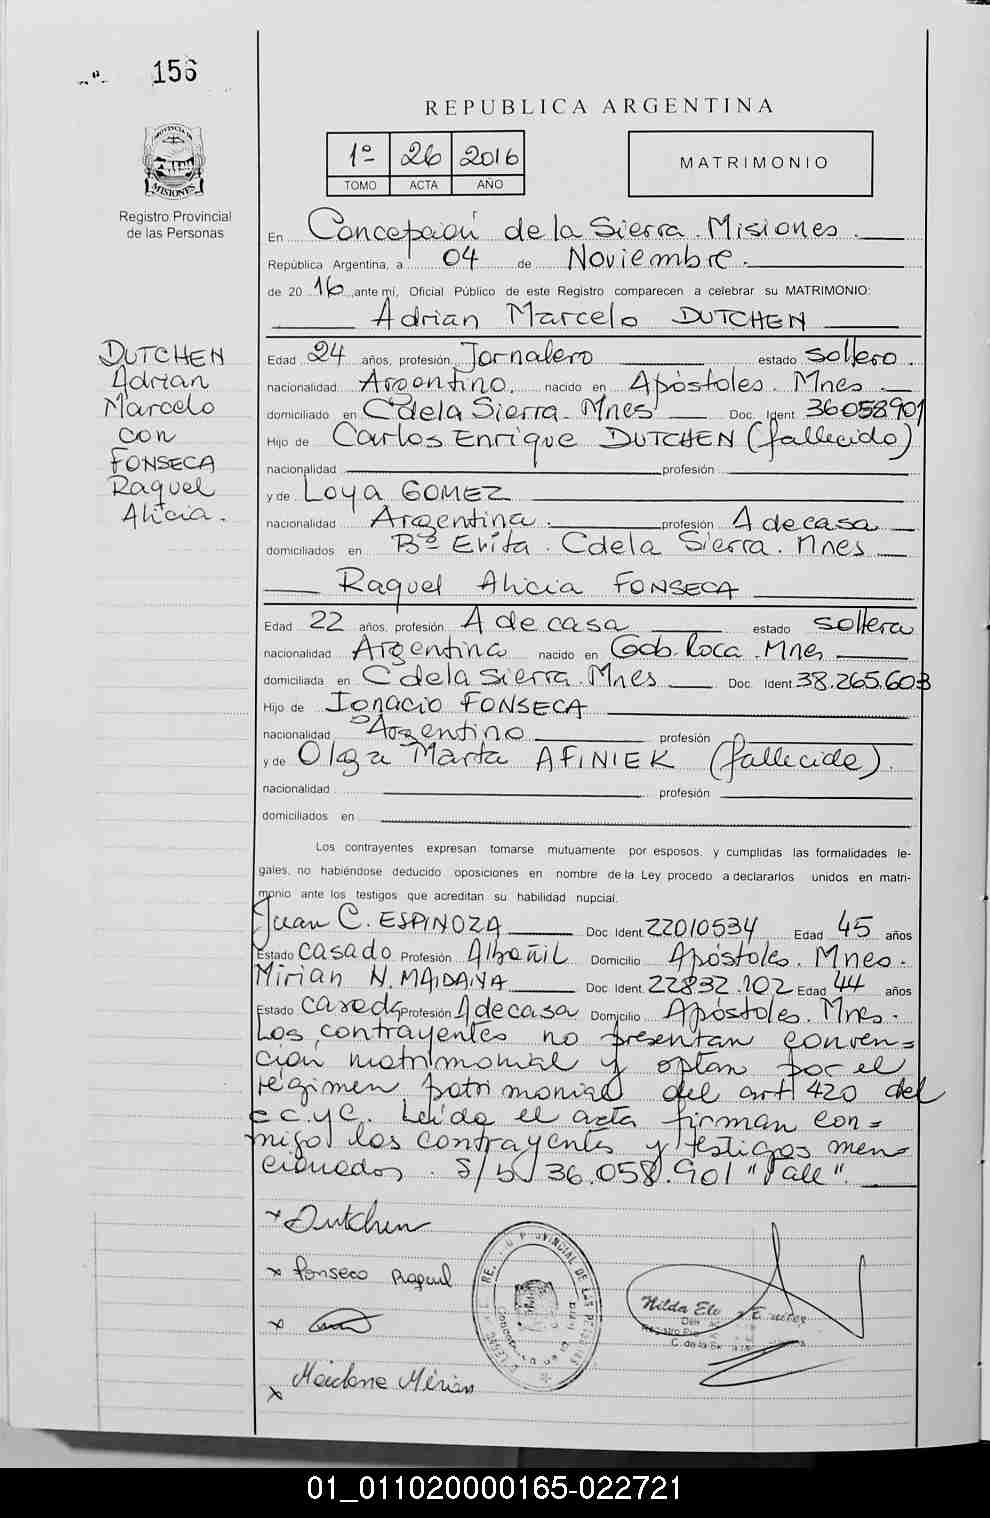 156
REPUBLICA ARGENTINA
1º 26 2016
TOMO ACTA AÑO
MATRIMONIO
PROVINCIA DE
MISIONES
Registro Provincial
de las Personas
En Concepción de la Sierra. Misiones.
República Argentina, a 04 de Noviembre.
de 2016, ante mí, Oficial Público de este Registro comparecen a celebrar su MATRIMONIO:
Adrian Marcelo DUTCHEN
DUTCHEN
Adrian
Marcelo
con
FONSECA
Raquel
Alicia.
Edad 24 años, profesión Jornalero estado soltero.
nacionalidad Argentino. nacido en Apóstoles. Mnes.
domiciliado en C dela Sierra. Mnes Doc. Ident 36058901
Hijo de Carlos Enrique DUTCHEN (fallecido)
nacionalidad profesión
y de Loya GOMEZ
nacionalidad Argentina. profesión A de casa
domiciliados en Bº Evita. C dela Sierra. Mnes
Raquel Alicia FONSECA
Edad 22 años, profesión A de casa estado soltera
nacionalidad Argentina nacido en Gob. Roca. Mnes
domiciliada en C dela Sierra. Mnes Doc. Ident. 38.265.603
Hijo de Ignacio FONSECA
nacionalidad Argentino profesión
y de Olga Marta AFINIEK (fallecida).
nacionalidad profesión
domiciliados en
Los contrayentes expresan tomarse mutuamente por esposos, y cumplidas las formalidades le-
gales, no habiéndose deducido oposiciones en nombre de la Ley procedo a declararlos unidos en matri-
monio ante los testigos que acreditan su habilidad nupcial.
Juan C. ESPINOZA Doc Ident 22010534 Edad 45 años
Estado casado Profesión Albañil Domicilio Apóstoles. Mnes.
Mirian N. MAIDANA Doc Ident 22832.102 Edad 44 años
Estado casada Profesión A de casa Domicilio Apóstoles. Mnes.
Los contrayentes no presentan conven=
ción matrimonial y optan por el
régimen patrimonial del art 420 del
C C. y C. Leída el acta firman con=
migo los contrayentes y testigos men=
cionados. S/b 36.058.901 "Vale".
x Dutchen
x Fonseca Raquel
x
x Maidana Mirian
Nilda
01_011020000165-022721